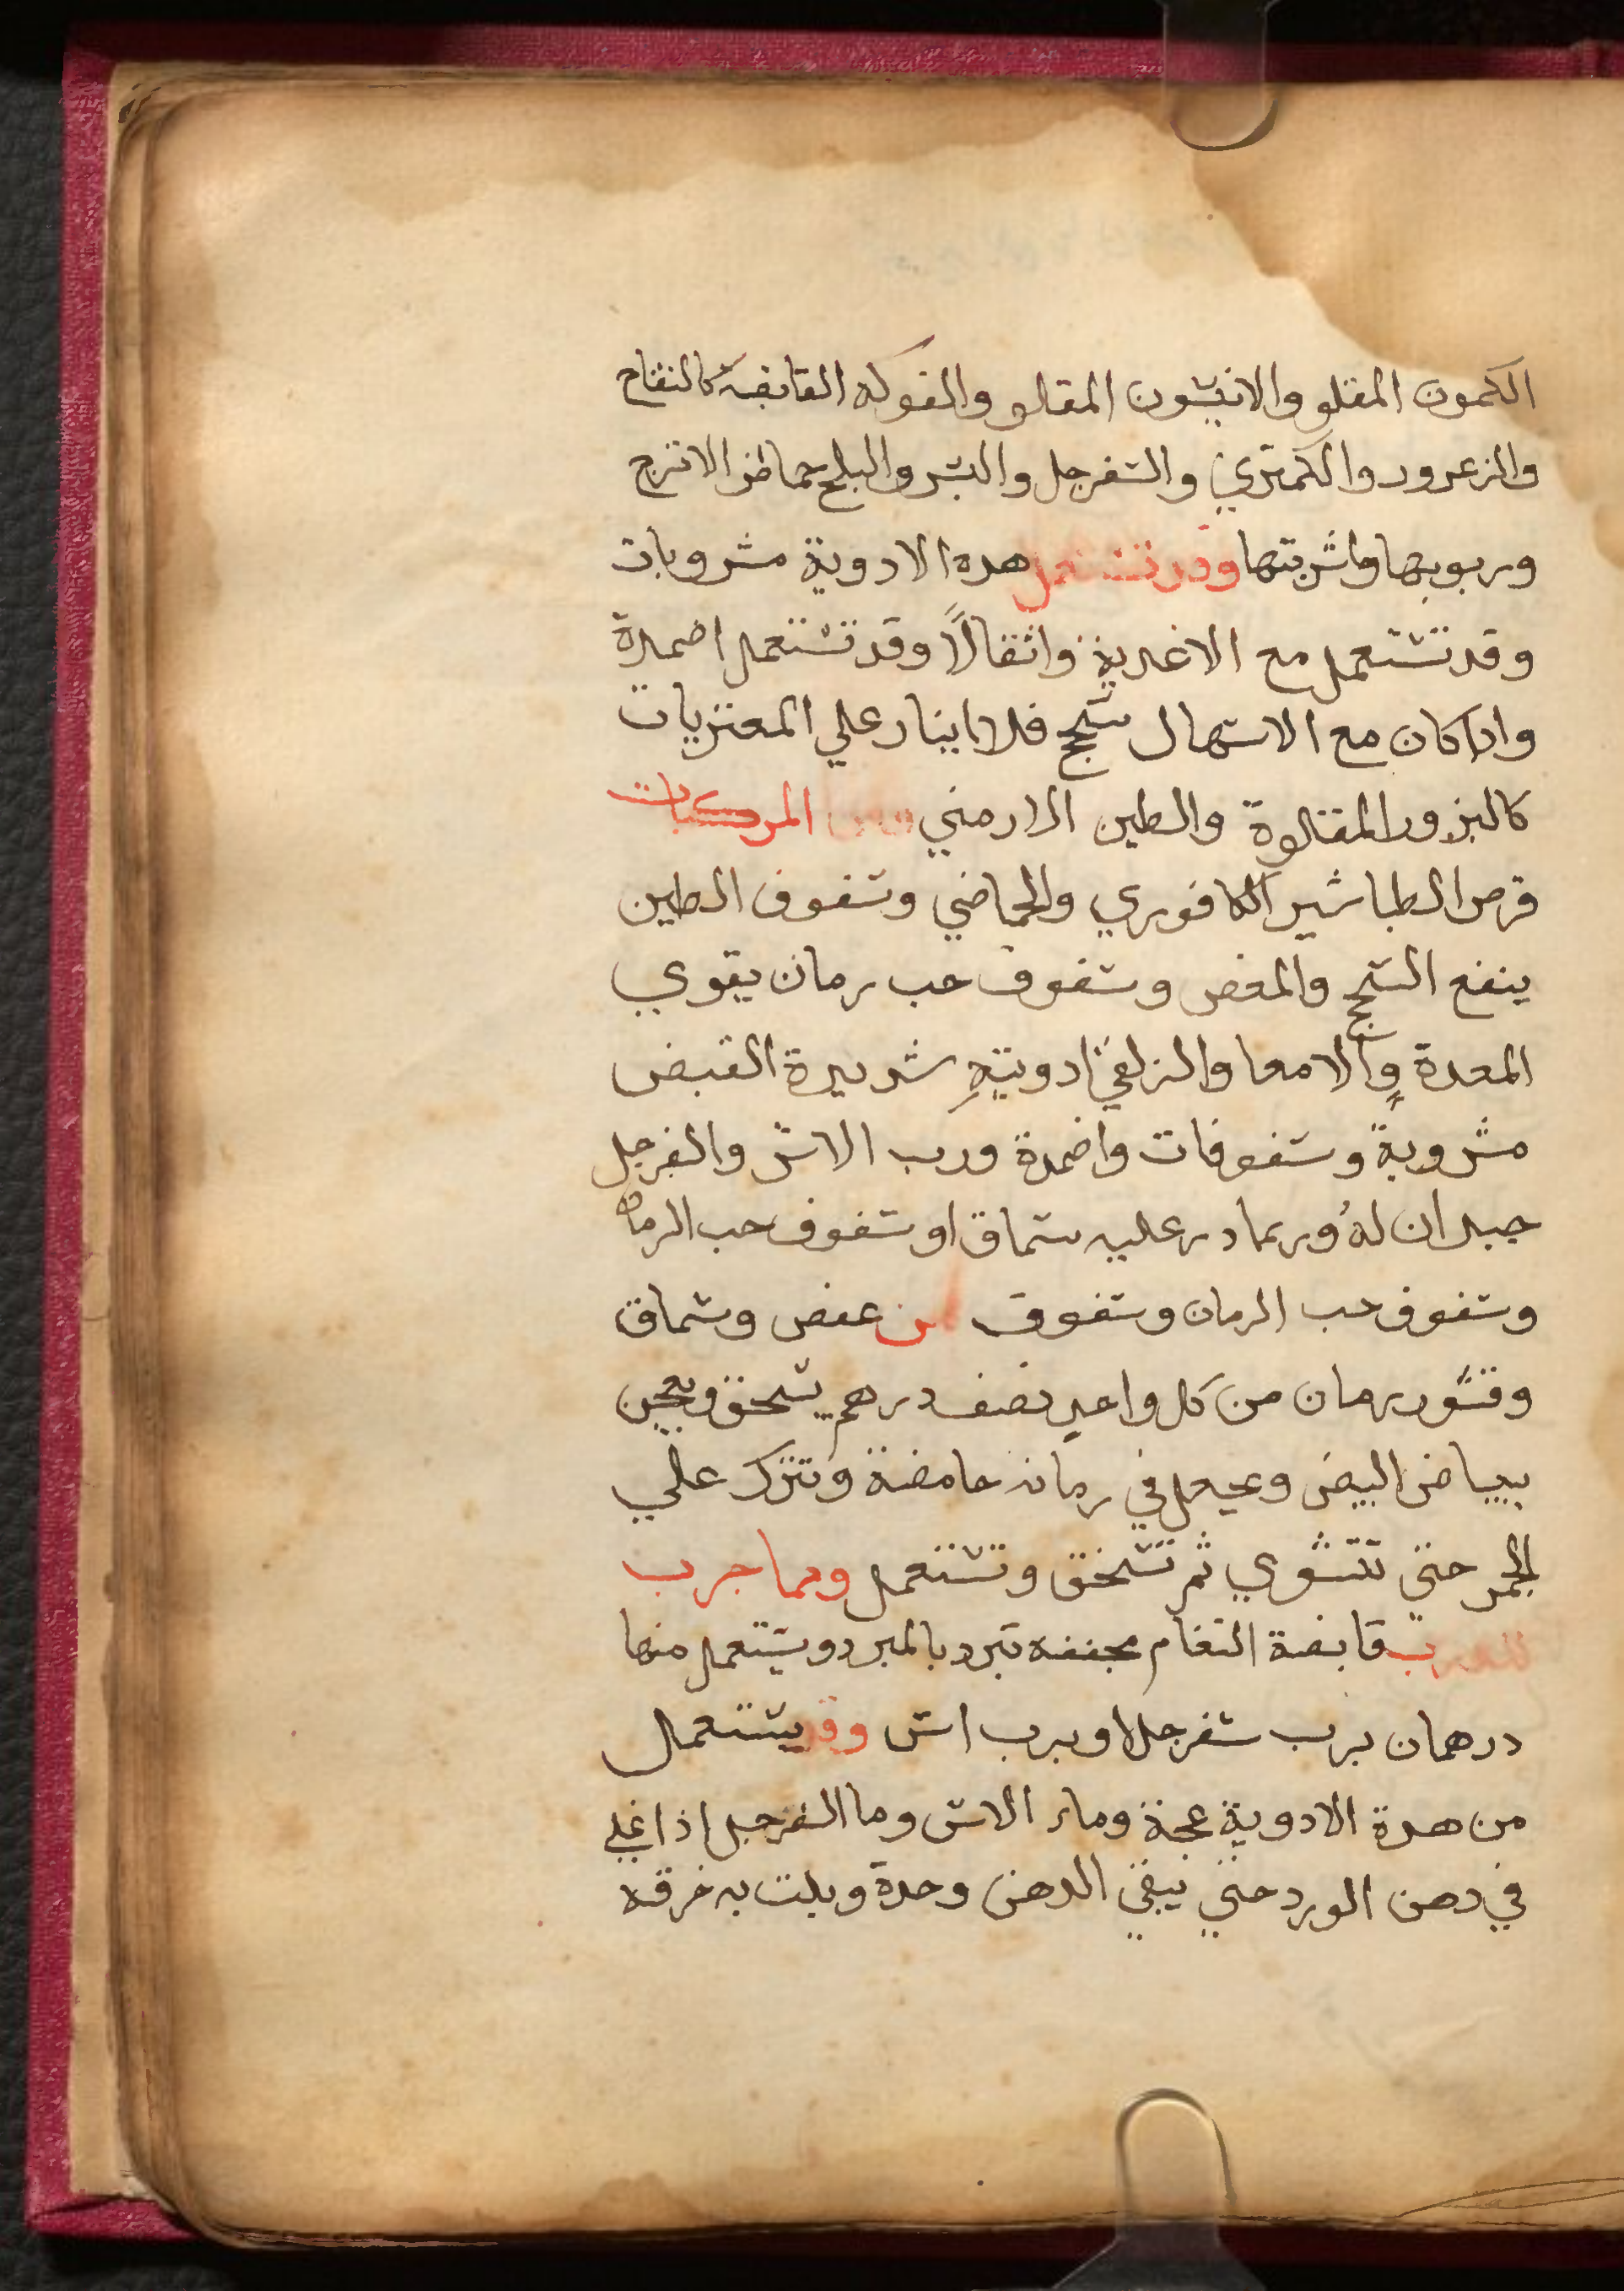 الكمون المقلو والانيسون المقلو والفوكه القابضة كالتفاح
والزعرور والكمتري والسفرجل والبسر والبلح حماض الاترج
وربوبها واشربتها وقد تستعمل هده الادوية مشروبات
وقد تستعمل مع الاغدية واثقالًا وقد تستعمل اضمدة
وادا كان مع الاسهال سحج فلا بنادر علي المغريات
كالبزور المقلوة والطين الارمني ومن المركبات
قرص الطباشير الكافوري والحماضي وسفوف الطين
ينفع السحج والمغص وسفوف حب رمان يقوي
المعدة والامعا والزلقي ادوية شديدة القبض
مشروبة وسفوفات واضمدة ورب الاس والسفرجل
جيدان له وربما در عليه سماق او سفوف حب الرمان
وسفوف حب الرمان وسفوف من عفص وسماق
وقشور رمان من كل واحد نصف درهم يسحق ويعجن
ببياض البيض ويجعل في رمانه حامضة وتترك علي
الجمر حتي تتشوي ثم تسحق وتستعمل ومما جرب
قابضة النعام مجففه تبرد بالمبرد ويستعمل منها
درهمان برب سفرجل او برب اس وقد يستعمل
من هدة الادوية عجة وماء الاس وما السفرجل اذا غلي
في دهن الورد حتي يبقي الدهن وحدة وبلت به خرقه